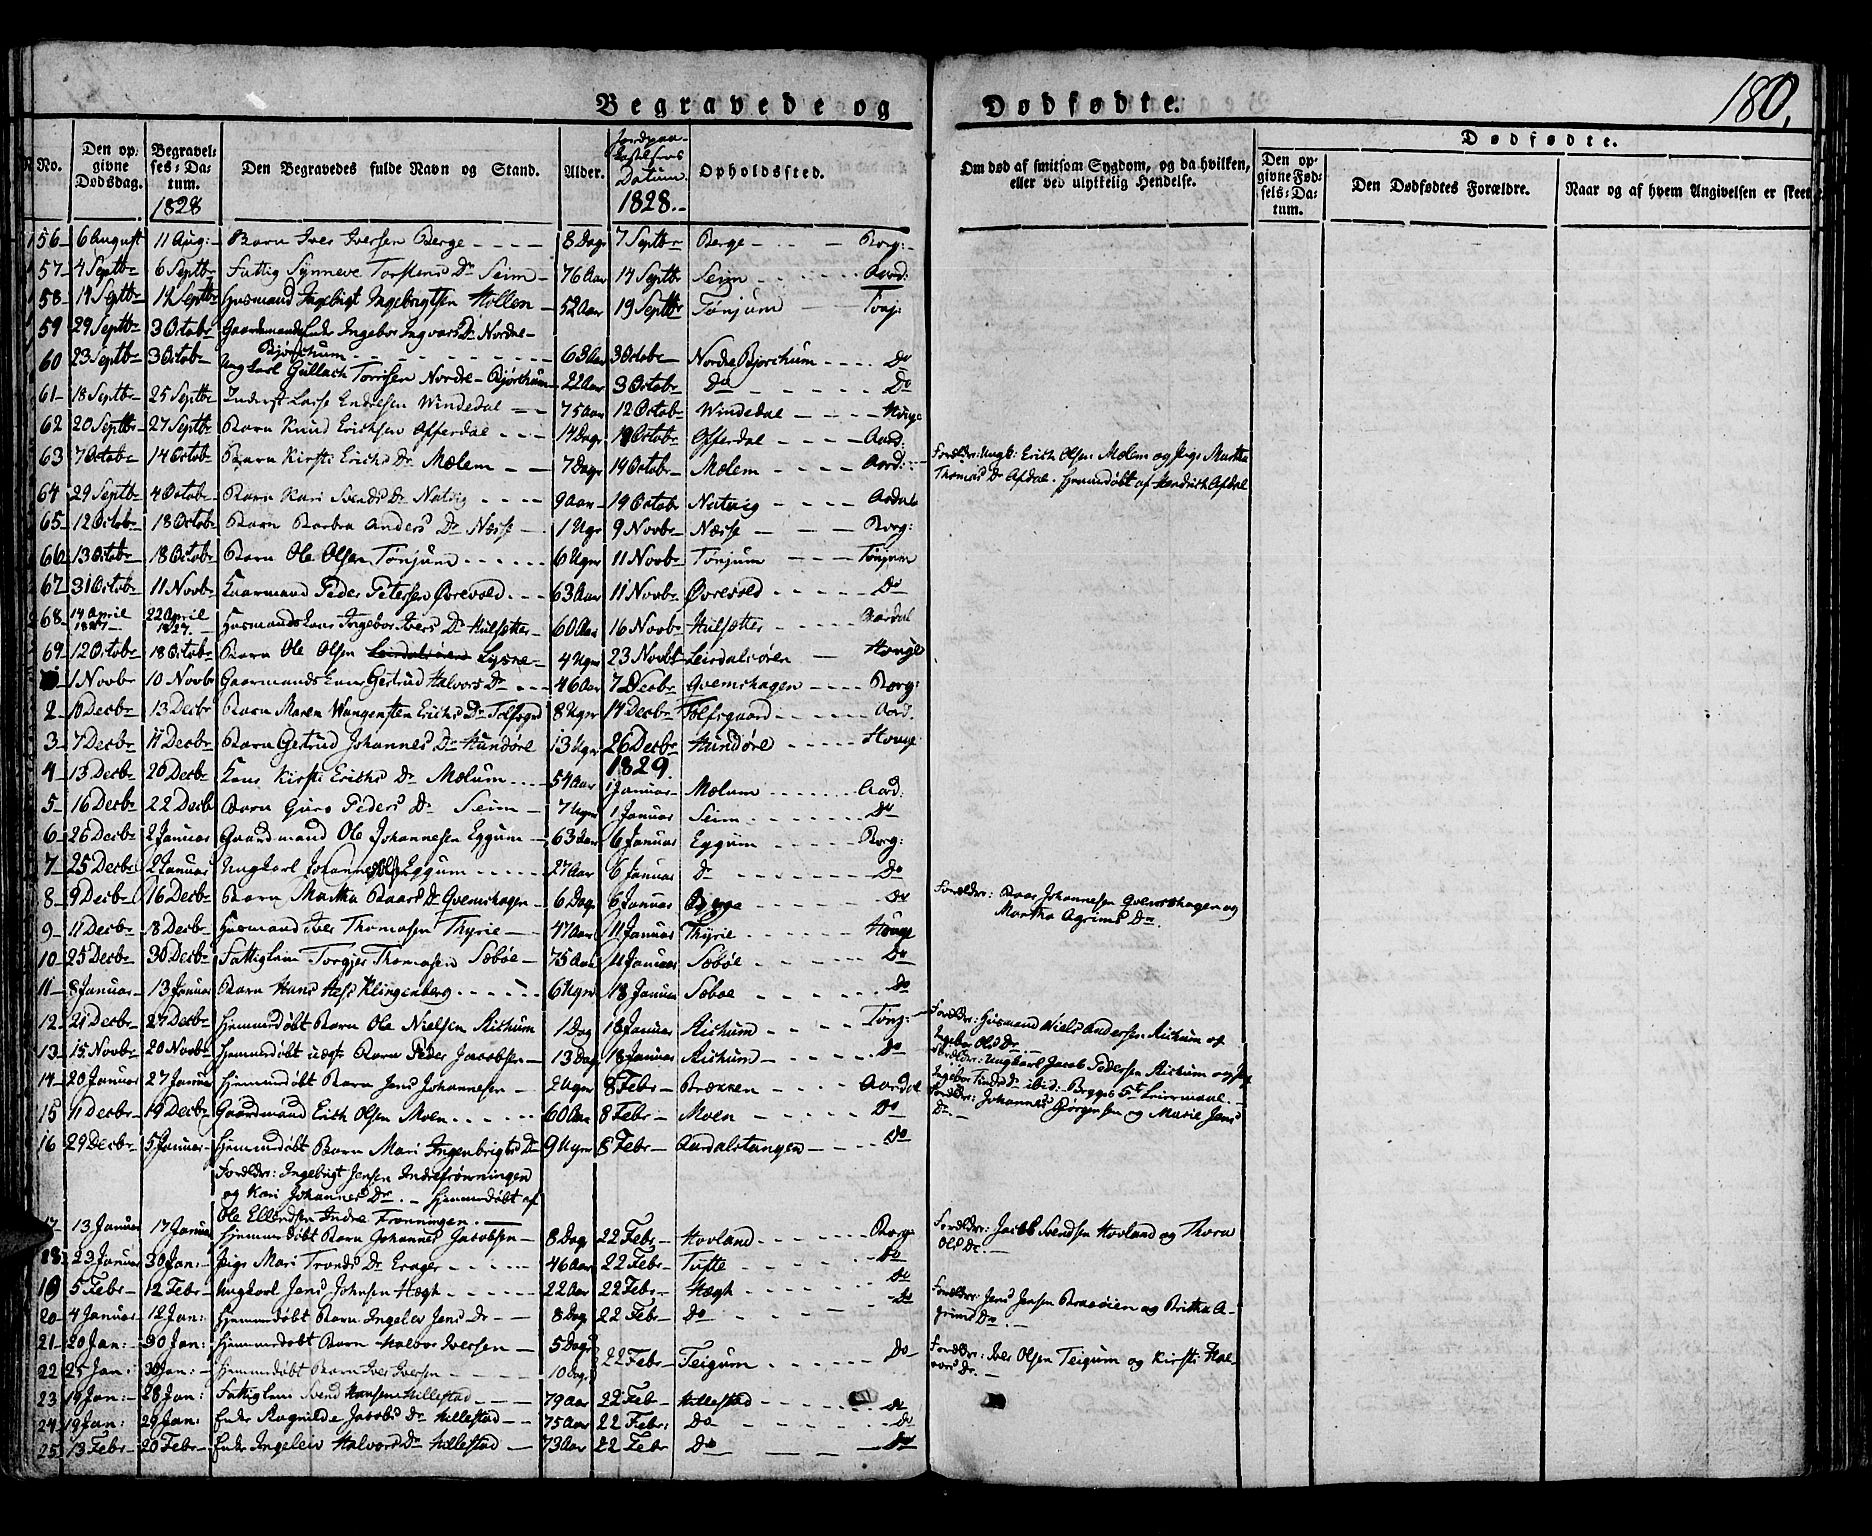 180.
Begravede og Dødfødte.
No.
Den opgivne Dødsdag.
Begravelses-Datum. 1828
Den Begravedes fulde Navn og Stand.
Alder.
Jordpaa-kastelsens Datum 1828.
Opholdssted.
Om død af smitsom Sygdom, og da hvilken, eller ved ulykkelig Hendelse.
Dødfødte.
Den opgivne Fødsels-Datum.
Den Dødfødtes Forældre.
Naar og af hvem Angivelsen er skeet
56 6 August 11 Aug: Barn Iver Iversen Berge 8 Dage 7 Septbr Berge Borg:
57 4 Septbr 6 Septbr Fattig Synneve Torstens Dr Seim 76 Aar 14 Septbr Seim Aard:
58 14 Septbr 14 Septbr Husmand Ingebrigt Ingebrigtsen Hollen 52 Aar 19 Septbr Tønjum Tonj:
59 29 Septbr 3 Octobr Gaardmands Enke Ingebor Ingvars Dr Nordre
Bjørchum 63 Aar 3 Octobr Nordre Bjorchum Do
60 23 Septbr 3 Octobr Ungkarl Gullach Torrisen Nordre Bjørchum 22 Aar 3 Octobr Do Do
61 18 Septbr 25 Septbr Inderst Lasse Endresen Windedal 75 Aar 12 Octob Windedal Houge
62 20 Septbr 27 Septbr Barn Knud Erichsen Offerdal 14 Dage 19 Octobr Offerdal Aard:
63 7 Octobr 14 Octobr Barn Kirsti Erichs Dr Mælem 7 Dage 19 Octobr Mælem Aard: Forældre: Ungk: Erich Olsen Mælem og Pige Martha
Thomas Dr Afdal. Hjemmedøbt af Hendrich Afdal
64 29 Septbr 4 Octobr Barn Kari Svends Dr Natvig 9 Aar 19 Octob Natvig Aardal
65 12 Octobr 18 Octobr Barn Barbra Anders Dr Næsse 1 Uge 9 Novbr Næsse Borg:
66 13 Octobr 18 Octobr Barn Ole Olsen Tønjum 6 Uger 11 Novbr Tønjum Tønjum
67 31 Octobr 11 Novbr Kaarmand Peder Petersen Øvrevold 63 Aar 11 Novbr Øvrevold Do
68 14 April 1827 22 April 1827 Husmands Kone Ingebor Ivers Dr Hulsætter 60 Aar 16 Novbr Hulsætter Aardal
69 12 Octobr 18 Octobr Barn Ole Olsen Leirdalsøren Lysne 4 Uger 23 Novbr Leirdalsören Houge
1 Novbr 10 Novbr Gaarmands Enke Gertrud Halvors Dr 46 Aar 7 Decbr Qvemshagen Borg:
2 10 Decbr 13 Decbr Barn Maren Wangensten Erichs Dr 8 Uger 14 Decbr Aard.
3 7 Decbr 11 Decbr Barn Gertrud Johannes Dr Hundøre 13 Uger 26 Decbr Hundøre Houge
1829.
4 13 Decbr 20 Decbr Kone Kirsti Erichs Dr Mælum 54 Aar 1 Januar Mælum Aard:
5 16 Decbr 22 Decb Barn Guro Peders Dr Seim 7 Uger 1 Januar Seim Do
6 26 Decbr 2 Januar Gaardmand Ole Johannesen Eggum 63 Aar 6 Januar Eggum Borg:
7 25 Decbr 2 Januar Ungkarl Johannes Ols Eggum 27 Aar 6 Januar Do Do
8 9 Decbr 16 Decbr Barn Martha Baars Dr Qvemshagen 6 Dage 6 Januar Do Forældre: Baar Johannesen Qvemshagen og
Martha Agrims Dr.
9 11 Decbr 18 Decbr Husmand Iver Thomasen Thyrie 47 Aar 11 Januar Thyrie Houge
10 25 Decbr 30 Decbr Fattiglem Torgjer Thomasen Sæbøe 75 Aar 11 Januar Sæbøe Do
11 8 Januar 13 Januar Barn Hans Klingenberg 6 Uger 18 Januar Sæboe Do
12 21 Decbr 27 Decbr Hjemmedøbt Barn Ole Nielsen Aichum 1 Dag 18 Januar Aichum Tonj: Forældre: Husmand Niels Andersen Aichum og
Ingebor Ols Dr
13 15 Novbr 20 Novbr Hjemmedøbt uægte Barn Peder Jacobsen 13 Dage 18 Januar Aichum Do Forældre: Ungkarl Jacob Pedersen Aichum og
Ingebor Dr ibid: Begges 5te Leiermaal.
14 20 Januar 27 Januar Hjemmedøbt Barn Jens Johannesen 2 Uger 8 Febr Brækken Aardal Forældre: Johannes Børgesen og Marie Jens
Dr.
15 11 Decbr 19 Decbr Gaardmand Erich Olsen Moen 60 Aar 8 Febr Moen Do
16 29 Decbr 5 Januar Hjemmedøbt Barn Mari Ingenbrigts Dr 9 Uger 8 Febr Aardalstangen Do
Forældre: Ingebrigt Jensen Indrefrønningen
og Kari Johannes Dr. Hjemmedøbt af
Ole Ellendsen Indre Frønningen.
17 13 Januar 17 Januar Hjemmedøbt Barn Johannes Jacobsen 8 Dage 22 Febr Hovland Borg: Forældre: Jacob Svendsen Hovland og Thora
Ols Dr.
18 23 Januar 30 Jan: Pige Mari Tronds Dr 46 Aar 22 Febr Tufte Do
19 5 Febr 12 Febr Ungkarl Jens Johnsen Hægh 22 Aar 22 Febr Hægh Do
20 4 Januar 12 Jan: Hjemmedøbt Barn Ingelev Jens Dr 8 Dage 22 Febr Do Do Forældre: Jens Jensen og Britha A-
grims Dr.
21 20 Jan: 30 Jan: Hjemmedøbt Barn Halvor Iversen 5 Dage
22 Febr Teigum Do Forældre: Iver Olsen Teigum og Kirsti Hal-
vors Dr.
22 25 Jan: 30 Jan: Hjemmedøbt Barn Iver Iversen 10 Dage
23 19 Jan: 28 Jan: Fattiglem Svend Hansen Hillestad 79 Aar 22 Feb Hillestad Do
24 19 Jan: 29 Jan: Enke Ragnilde Jacobs Dr Hillestad 75 Aar 22 Febr: Do Do
25 13 Febr 20 Febr Enke Ingelev Halvors Dr Hillestad 73 Aar 22 Febr Do Do